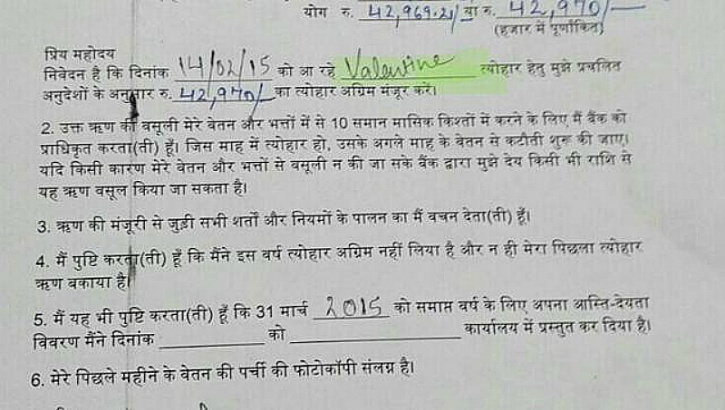 योग रु. 42,969.21/ या रु. 42,970/-
(हजार में पूर्णांकित)
प्रिय महोदय
निवेदन है कि दिनांक 14/02/15 को आ रहे Valentine त्योहार हेतु मुझे प्रचलित
अनुदेशों के अनुसार रु. 42,970/- का त्योहार अग्रिम मंजूर करें।
2. उक्त ऋण की वसूली मेरे वेतन और भत्तों में से 10 समान मासिक किश्तों में करने के लिए मैं बैंक को
प्राधिकृत करता(ती) हूँ। जिस माह में त्योहार हो, उसके अगले माह के वेतन से कटौती शुरू की जाए।
यदि किसी कारण मेरे वेतन और भत्तों से वसूली न की जा सके बैंक द्वारा मुझे देय किसी भी राशि से
यह ऋण वसूल किया जा सकता है।
3. ऋण की मंजूरी से जुड़ी सभी शर्तों और नियमों के पालन का मैं वचन देता(ती) हूँ।
4. मैं पुष्टि करता(ती) हूँ कि मैंने इस वर्ष त्योहार अग्रिम नहीं लिया है और न ही मेरा पिछला त्योहार
ऋण बकाया है।
5. मैं यह भी पुष्टि करता(ती) हूँ कि 31 मार्च 2015 को समाप्त वर्ष के लिए अपना आस्ति-देयता
विवरण मैंने दिनांक ____________ को ____________________ कार्यालय में प्रस्तुत कर दिया है।
6. मेरे पिछले महीने के वेतन की पर्ची की फोटोकॉपी संलग्न है।